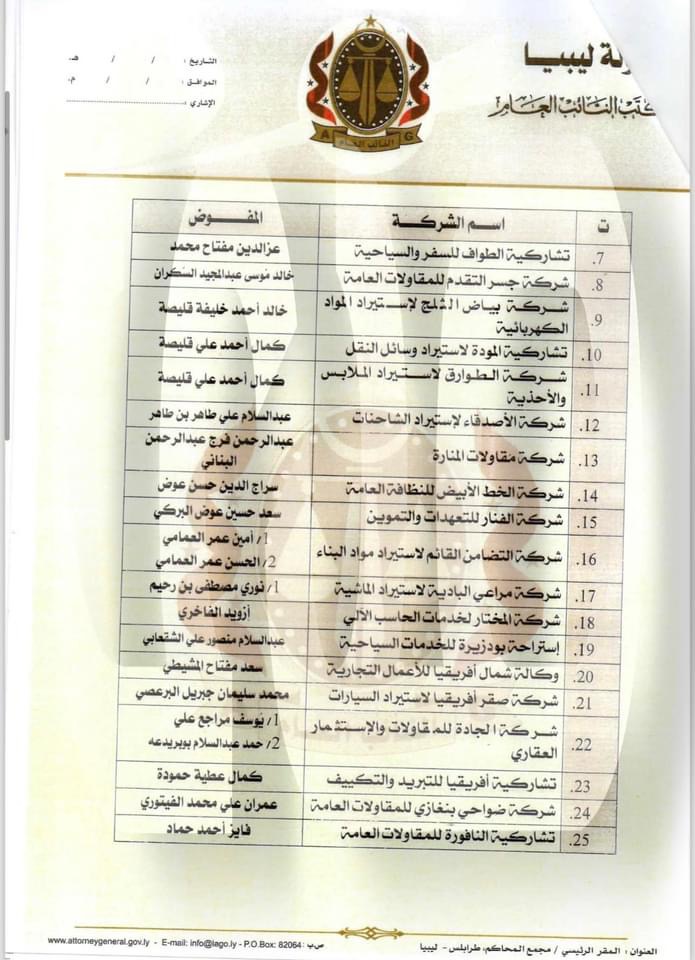 ـة ليبيا
كتب النائب العام
التاريخ : / / هـ
الموافق : / / م
الإشاري :
A G
النائب العام
ت اسم الشركة المفوض
7. تشاركية الطواف للسفر والسياحية عزالدين مفتاح محمد
8. شركة جسر التقدم للمقاولات العامة خالد موسى عبدالمجيد السكران
9. شركة بياض الثلج لإستيراد المواد الكهربائية خالد أحمد خليفة قليصة
10. تشاركية المودة لاستيراد وسائل النقل كمال أحمد علي قليصة
11. شركة الطوارق لاستيراد الملابس والأحذية كمال أحمد علي قليصة
12. شركة الأصدقاء لإستيراد الشاحنات عبدالسلام علي طاهر بن طاهر
13. شركة مقاولات المنارة عبدالرحمن فرج عبدالرحمن البناني
14. شركة الخط الأبيض للنظافة العامة سراج الدين حسن عوض
15. شركة الفنار للتعهدات والتموين سعد حسين عوض البركي
16. شركة التضامن القائم لاستيراد مواد البناء 1/ أمين عمر العمامي
2/ الحسن عمر العمامي
17. شركة مراعي البادية لاستيراد الماشية 1/ نوري مصطفى بن رحيم
18. شركة المختار لخدمات الحاسب الآلي أزويد الفاخري
19. إستراحة بودزيرة للخدمات السياحية عبدالسلام منصور علي الشقعابي
20. وكالة شمال أفريقيا للأعمال التجارية سعد مفتاح المشيطي
21. شركة صقر أفريقيا لاستيراد السيارات محمد سليمان جبريل البرعصي
22. شركة الجادة للمقاولات والإستثمار العقاري 1/ يوسف مراجع علي
2/ حمد عبدالسلام بوبريدعه
23. تشاركية أفريقيا للتبريد والتكييف كمال عطية حمودة
24. شركة ضواحي بنغازي للمقاولات العامة عمران علي محمد الفيتوري
25. تشاركية النافورة للمقاولات العامة فايز أحمد حماد
العنوان : المقر الرئيسي / مجمع المحاكم، طرابلس - ليبيا
www.attorneygeneral.gov.ly - E-mail: info@lago.ly - P.O.Box: 82064 : ص ب